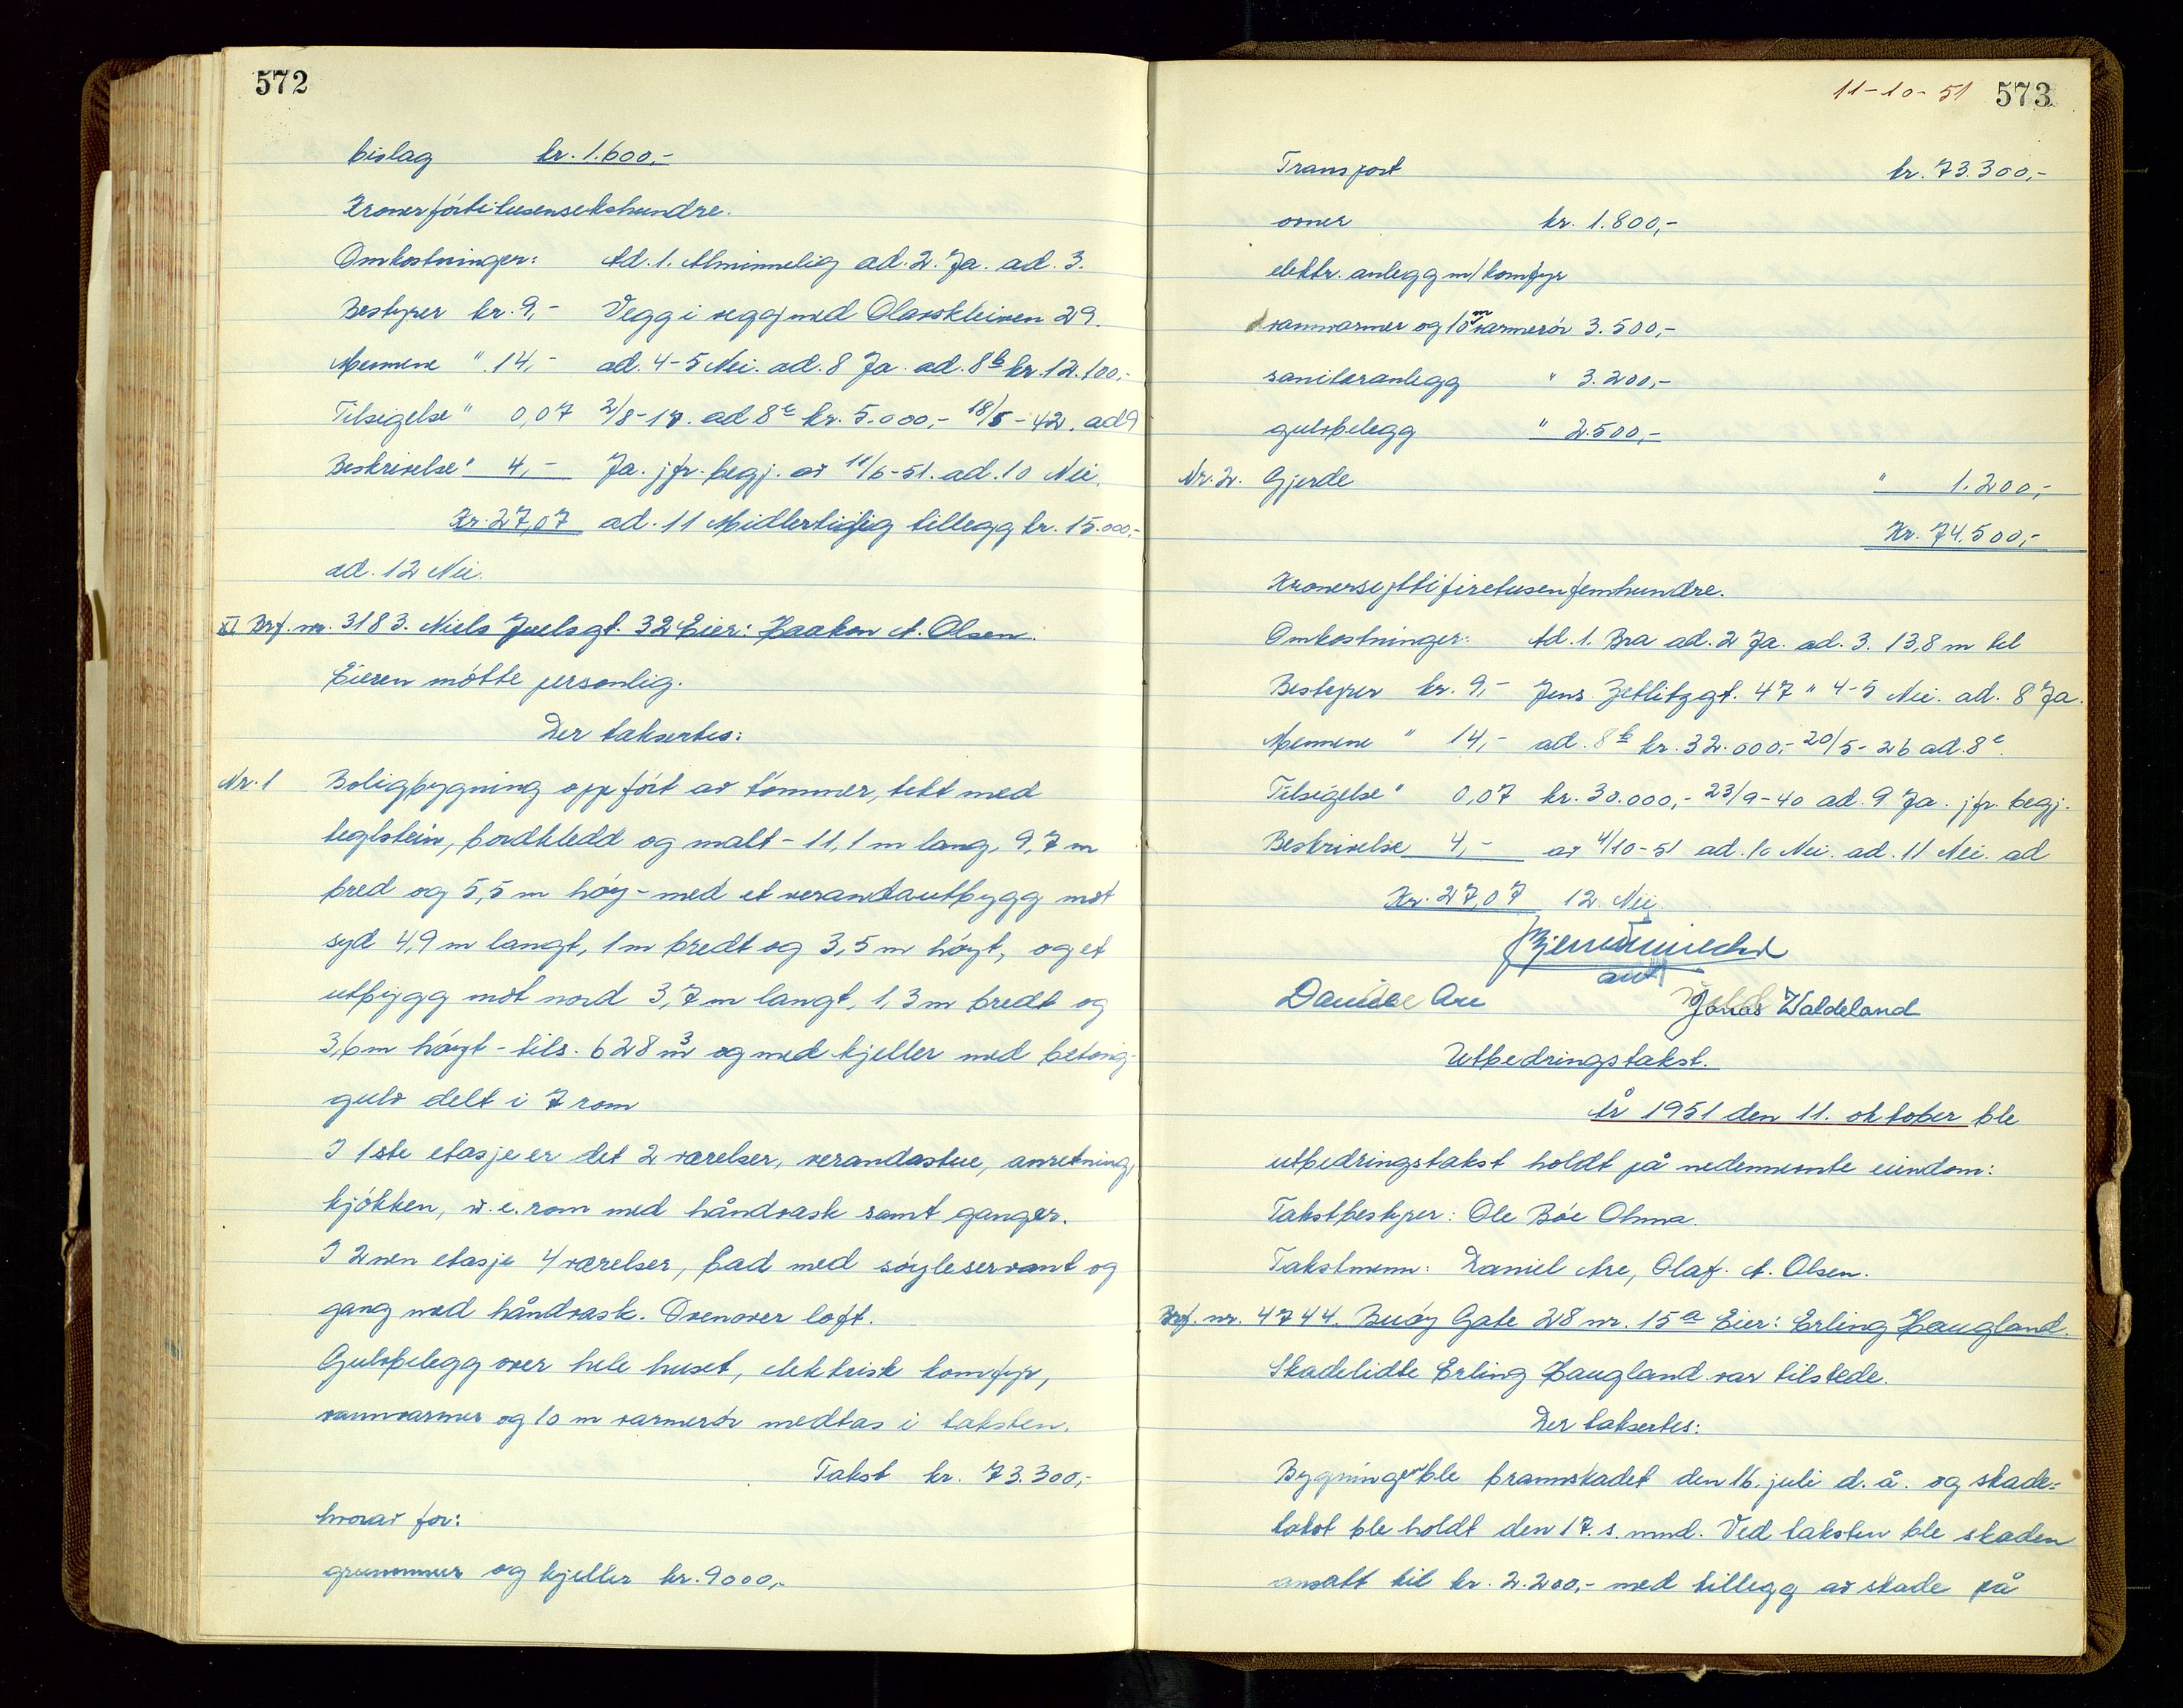 572
bislag kr. 1.600,-
Kronerførtitusensekshundre.
Omkostninger: Ad. 1. Alminnelig ad. 2. Ja. ad. 3.
Bestyrer kr. 9,- Vegg i vegg med Olavskleiven 29.
Mennene " 14,- ad. 4-5 Nei. ad. 8 Ja. ad. 8b kr. 12.100,-
Tilsigelse " 0,07 2/8-17. ad 8c kr. 5.000,- 18/5-42. ad 9
Beskrivelse " 4,- Ja. jfr. begj. av 11/6-51. ad. 10 Nei.
Kr. 27,07 ad. 11 Midlertidig tillegg kr. 15.000,-
ad. 12 Nei.
XI Brf. nr. 3183. Niels Juelsgt. 32 Eier: Haakon A. Olsen.
Eieren møtte personlig.
Der taksertes:
Nr. 1 Boligbygning oppført av tømmer, tekt med
teglstein, bordkledd og malt - 11,1 m lang, 9,7 m
bred og 5,5 m høy - med et verandautbygg mot
syd 4,9 m langt, 1 m bredt og 3,5 m høyt, og et
utbygg mot nord 3,7 m langt, 1,3 m bredt og
3,6 m høyt - tils. 628 m3 og med kjeller med betong-
gulv delt i 7 rom
I 1ste etasje er det 2 værelser, verandastue, anretning,
kjøkken, w.c. rom med håndvask samt ganger.
I 2nen etasje 4 værelser, bad med søyleservant og
gang med håndvask. Ovenover loft.
Gulvbelegg over hele huset, elektrisk komfyr,
vannvarmer og 10 m varmerør medtas i taksten.
Takst kr. 73.300,-
hvorav for:
grunnmur og kjeller kr. 9000,-
11-10-51 573
Transport kr. 73.300,-
ovner kr. 1.800,-
elektr. anlegg m/komfyr
vannvarmer og 10 m varmerør 3.500,-
sanitæranlegg " 3.200,-
gulvbelegg " 2.500,-
Nr. 2. Gjerde " 1.200,-
Kr. 74.500,-
Kronersyttifiretusenfemhundre.
Omkostninger: Ad. 1. Bra ad. 2 Ja. ad. 3. 13,8 m til
Bestyrer kr. 9,- Jens Zetlitzgt. 47 " 4-5 Nei. ad. 8 Ja.
Mennene " 14,- ad. 8b kr. 32.000,- 20/5-26 ad. 8c.
Tilsigelse " 0,07 kr. 30.000,- 23/9-40 ad. 9 Ja. jfr. begj.
Beskrivelse 4,- av 4/10-51 ad. 10 Nei. ad. 11 Nei. ad
Kr. 27,07 12. Nei.
Daniel Are Jonas Waldeland
Utbedringstakst.
År 1951 den 11. oktober ble
utbedringstakst holdt på nedennevnte eiendom:
Takstbestyrer: Ole Bøe Olsen.
Takstmenn: Daniel Are, Olaf A. Olsen.
Brf. nr. 4744. Buøy Gate 28 nr. 15a Eier: Erling Haugland.
Skadelidte Erling Haugland var tilstede.
Der taksertes:
Bygningen ble brannskadet den 16. juli d.å. og skade=
takst ble holdt den 17. s. mnd. Ved taksten ble skaden
ansatt til kr. 2.200,- med tillegg av skade på